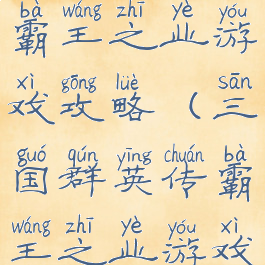 bà wáng zhī yè yóu
霸王之业游
xì gōng lüè sān
戏攻略（三
guó qún yīng chuán bà
国群英传霸
wáng zhī yè yóu xì
王之业游戏